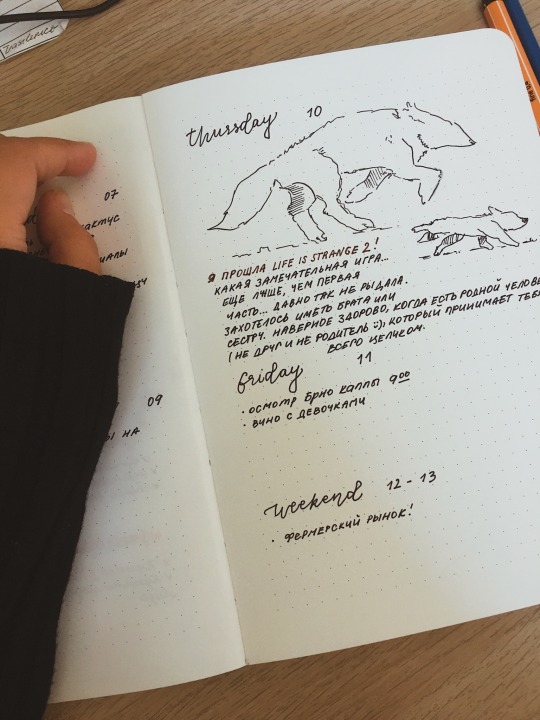 07
кактус
09
ы на
thursday 10
Я ПРОШЛА LIFE IS STRANGE 2!
КАКАЯ ЗАМЕЧАТЕЛЬНАЯ ИГРА...
ЕЩЕ ЛУЧШЕ, ЧЕМ ПЕРВАЯ
ЧАСТЬ... ДАВНО ТАК НЕ РЫДАЛА.
ЗАХОТЕЛОСЬ ИМЕТЬ БРАТА ИЛИ
СЕСТРУ. НАВЕРНОЕ ЗДОРОВО, КОГДА ЕСТЬ РОДНОЙ ЧЕЛОВЕ
(НЕ ДРУГ И НЕ РОДИТЕЛЬ :), КОТОРЫЙ ПРИНИМАЕТ ТЕБ
ВСЕГО ЦЕЛИКОМ.
friday 11
· ОСМОТР БРНО 9⁰⁰
· ВИНО С ДЕВОЧКАМИ
weekend 12 - 13
· ФЕРМЕРСКИЙ РЫНОК!